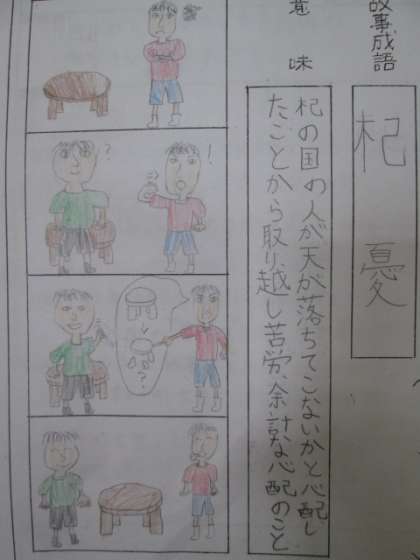 故事成語
杞憂
意味
杞の国の人が天が落ちてこないかと心配し
たことから取り越し苦労、余計な心配のこと
?
!
?